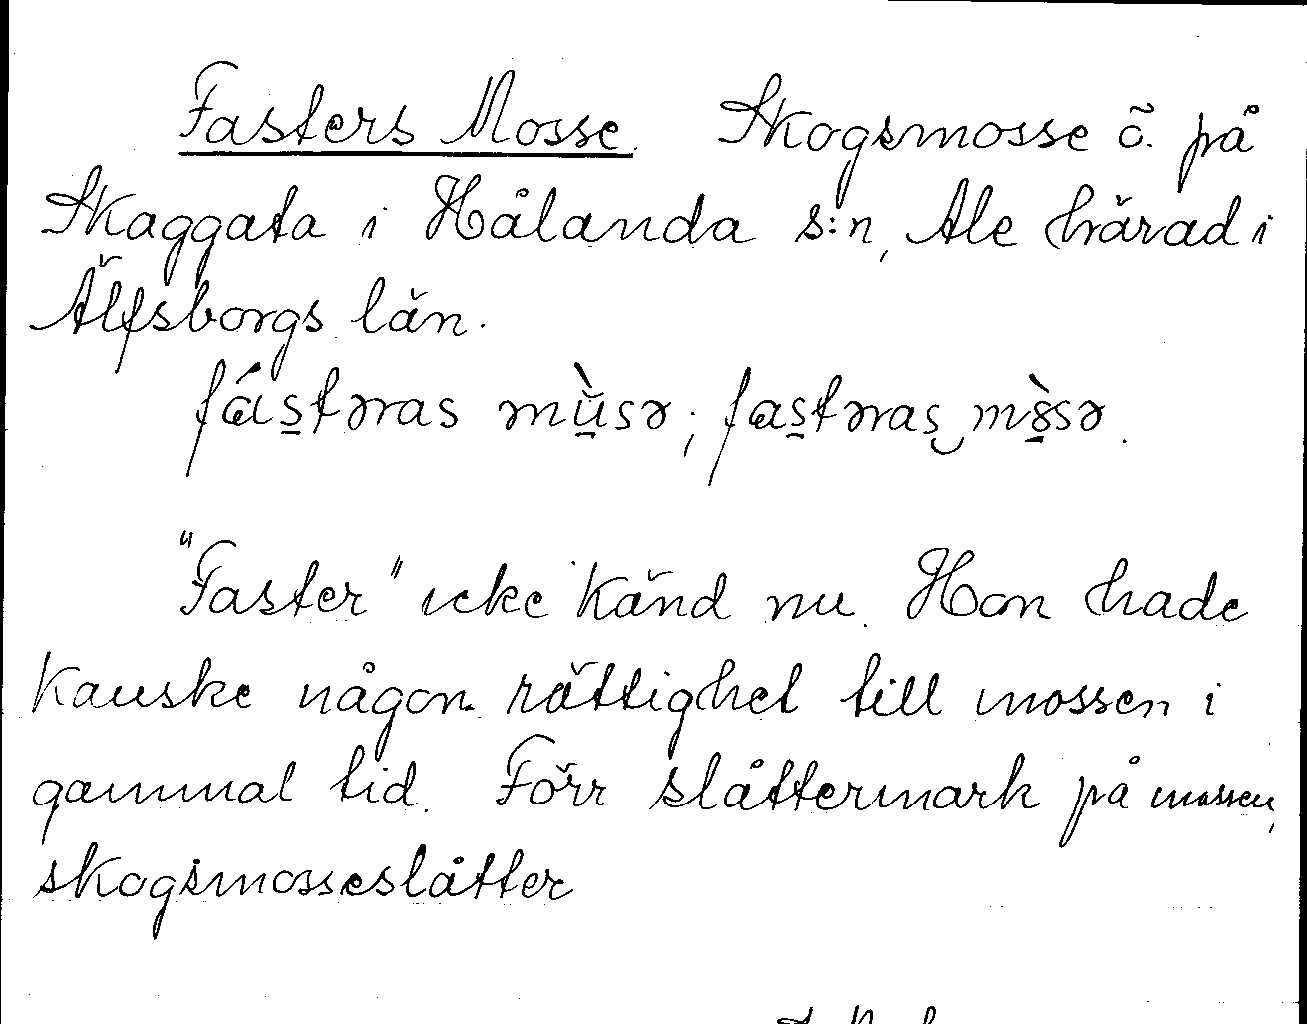 Fasters Mosse. Skogsmosse ö. på
Skaggata i Hålanda s:n, Ale härad i
Älfsborgs län.
fástəras mùsə; fastəras mòsə.
"Faster" icke känd nu. Hon hade
kanske någon rättighet till mossen i
gammal tid. Förr slåttermark på mossen,
skogsmosseslåtter